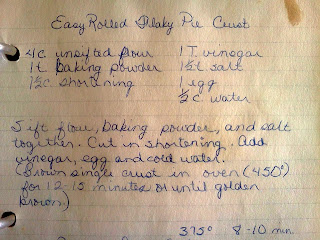 Easy Rolled Flaky Pie Crust
4 c unsifted flour 1 T vinegar
1 t baking powder 1½ t salt
1½ c shortening 1 egg
½ c water
Sift flour, baking powder, and salt
together. Cut in shortening. Add
vinegar, egg and cold water.
(Brown single crust in oven (450°)
for 12-15 minutes or until golden
brown.)
375° 8-10 min.